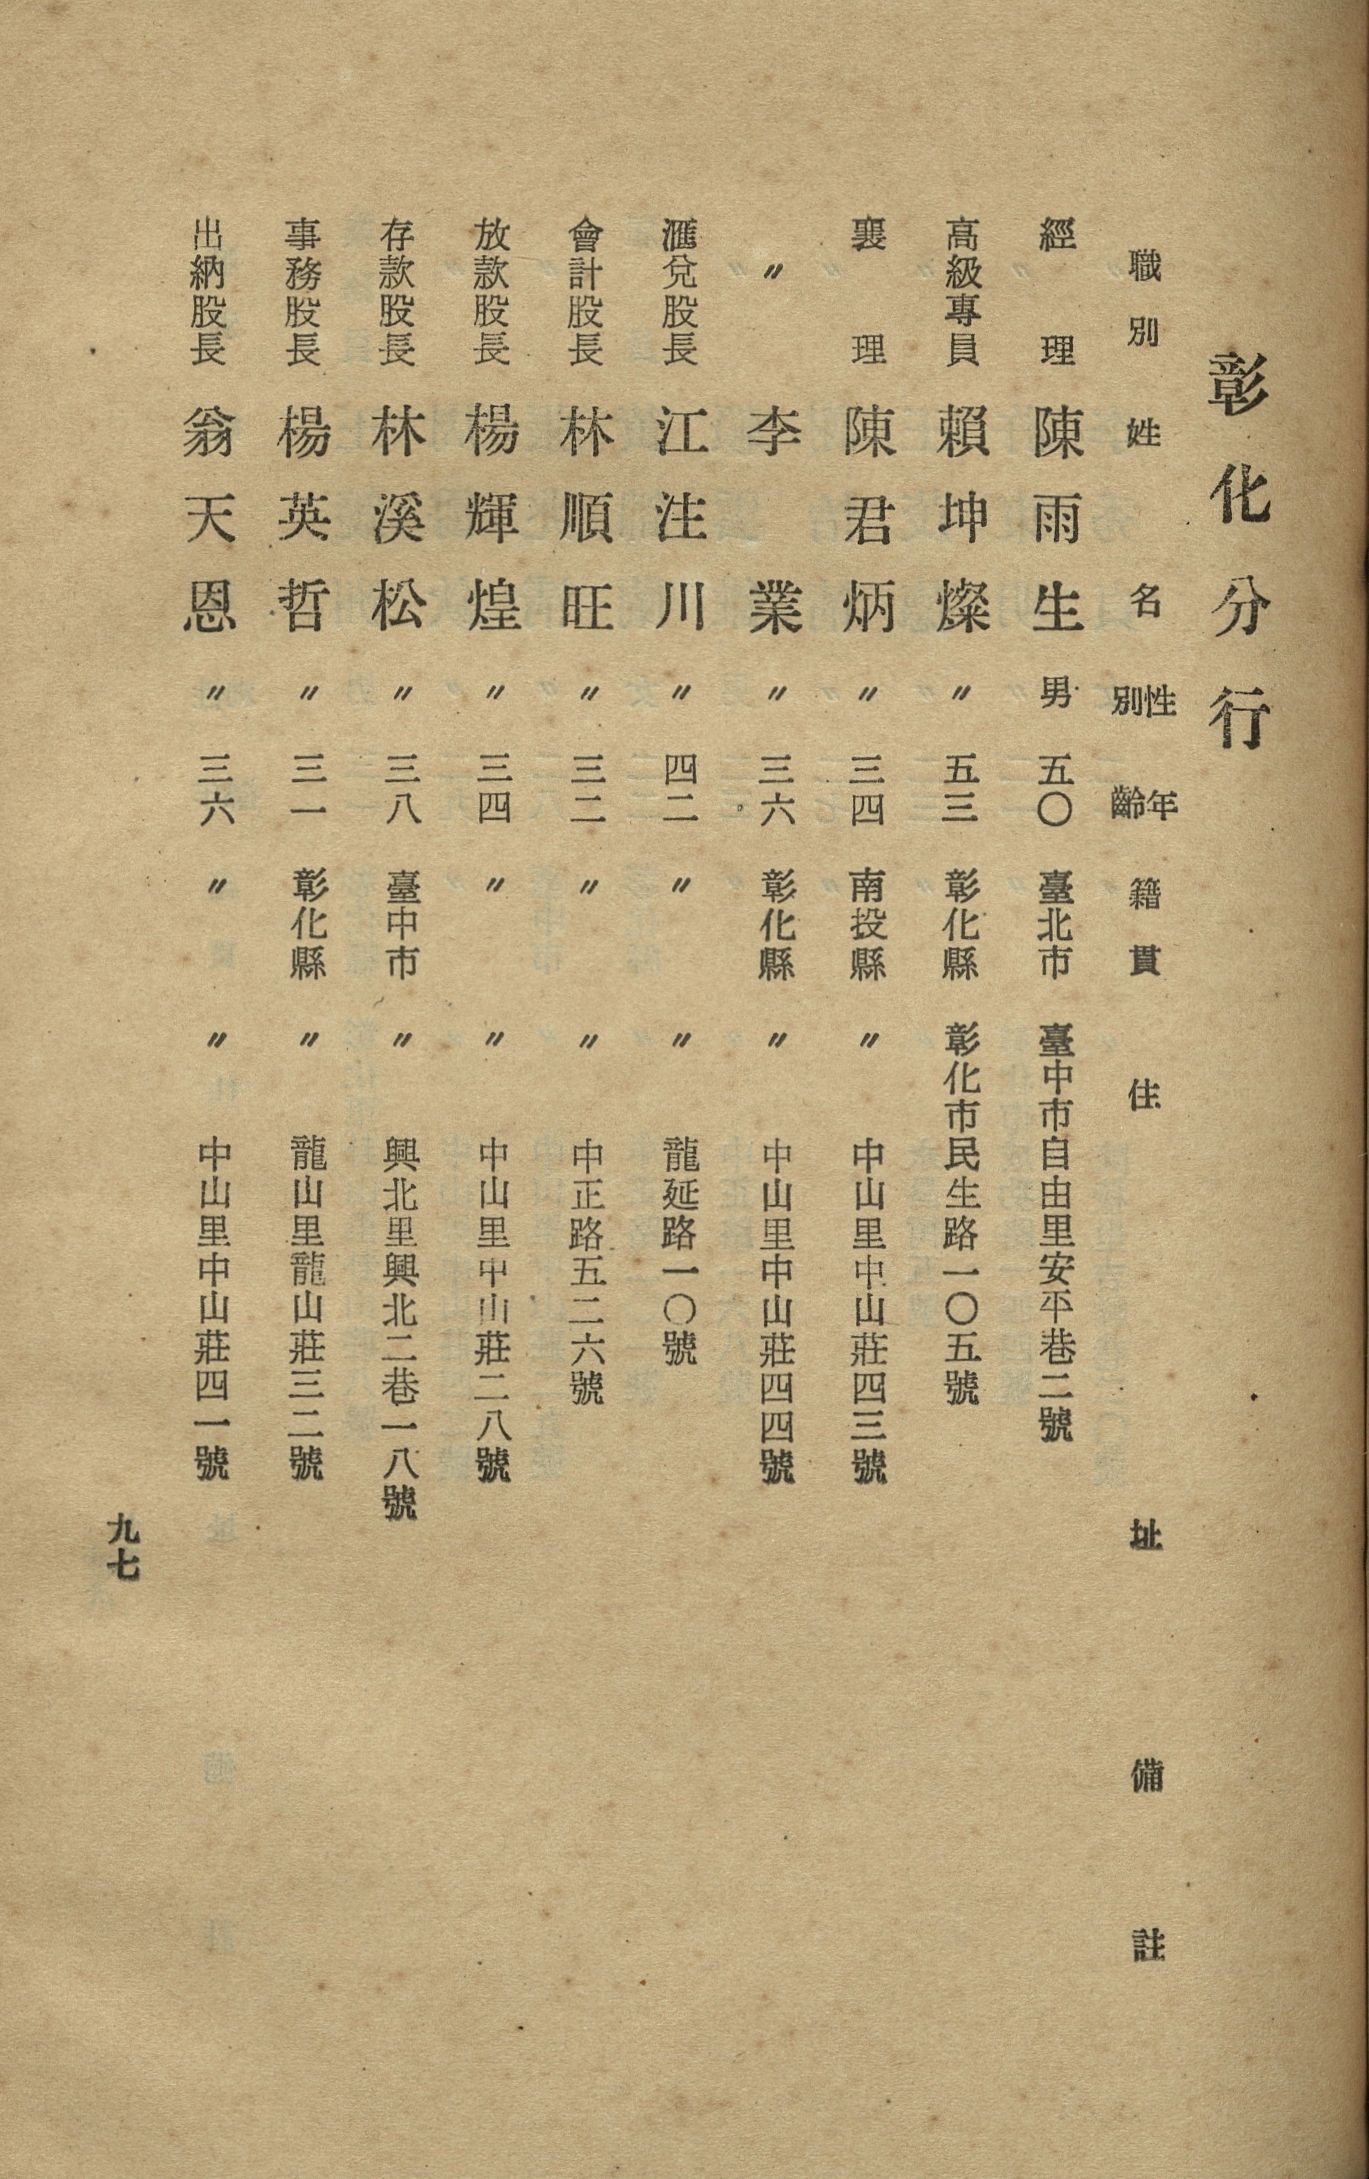 彰化分行
職別 姓名 性別 年齡 籍貫 住址 備註
經理 陳雨生 男 五〇 臺北市 臺中市自由里安平巷二號
高級專員 賴坤燦 〃 五三 彰化縣 彰化市民生路一〇五號
襄理 陳君炳 〃 三四 南投縣 〃 中山里中山莊四三號
〃 李業 〃 三六 彰化縣 〃 中山里中山莊四四號
滙兌股長 江注川 〃 四二 〃 〃 龍延路一〇號
會計股長 林順旺 〃 三二 〃 〃 中正路五二六號
放款股長 楊輝煌 〃 三四 〃 〃 中山里中山莊二八號
存款股長 林溪松 〃 三八 臺中市 〃 興北里興北二巷一八號
事務股長 楊英哲 〃 三一 彰化縣 〃 龍山里龍山莊三二號
出納股長 翁天恩 〃 三六 〃 〃 中山里中山莊四一號
九七